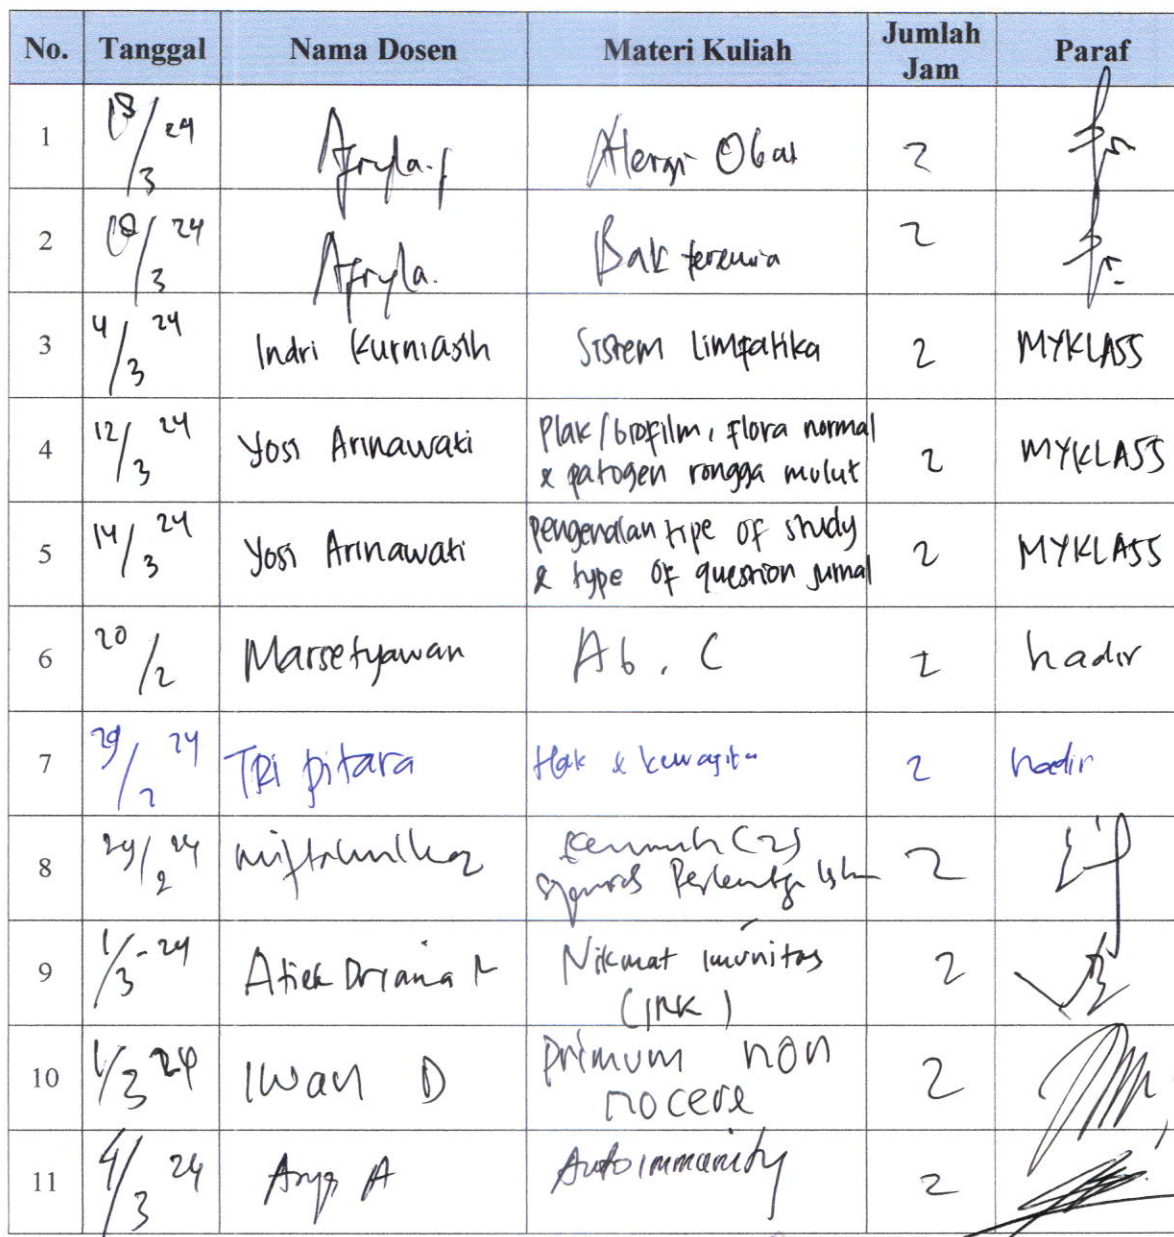 No. Tanggal Nama Dosen Materi Kuliah Jumlah Jam Paraf
1 18/3 24 Afryla. Alergi Obat 2
2 18/3 24 Afryla. Bakteremia 2
3 4/3 24 Indri Kurniasih Sistem Limfatika 2 MYKLASS
4 12/3 24 Yosi Arinawati Plak/biofilm, flora normal
& patogen rongga mulut 2 MYKLASS
5 14/3 24 Yosi Arinawati pengenalan tipe of study
& type of question jurnal 2 MYKLASS
6 20/2 Marsetyawan Ab. C 2 hadir
7 29/2 24 TRi pitara Hak & kewajiban 2 hadir
8 29/2 24 2
9 1/3-24 Atiek Driana Nikmat imunitas
(IRK) 2
10 1/3 24 Iwan D primum non
nocere 2
11 4/3 24 Arya A Autoimmunity 2